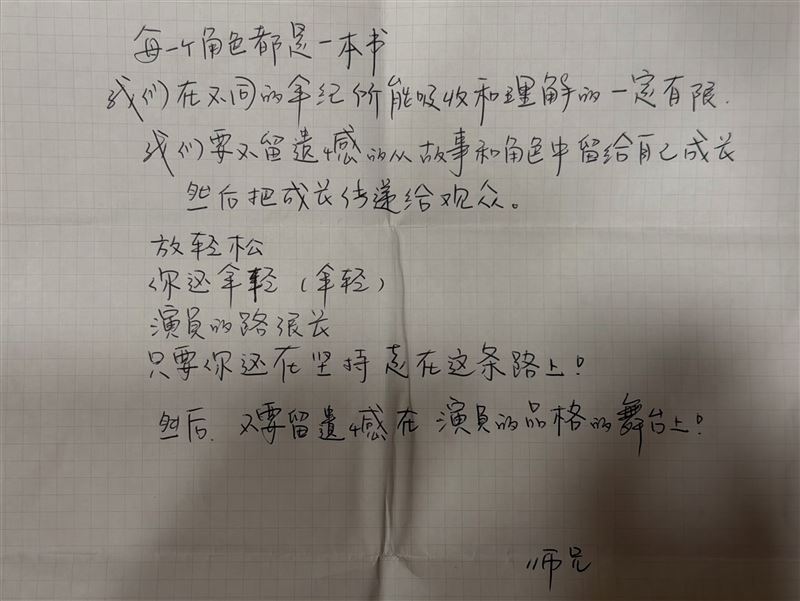 每一个角色都是一本书
我们在不同的年纪所能吸收和理解的一定有限.
我们要不留遗憾的从故事和角色中留给自己成长
然后把成长传递给观众。
放轻松
你还年轻（年轻）
演員的路很长
只要你还在坚持走在这条路上!
然后.不要留遗憾在演員的品格的舞台上!
师兄